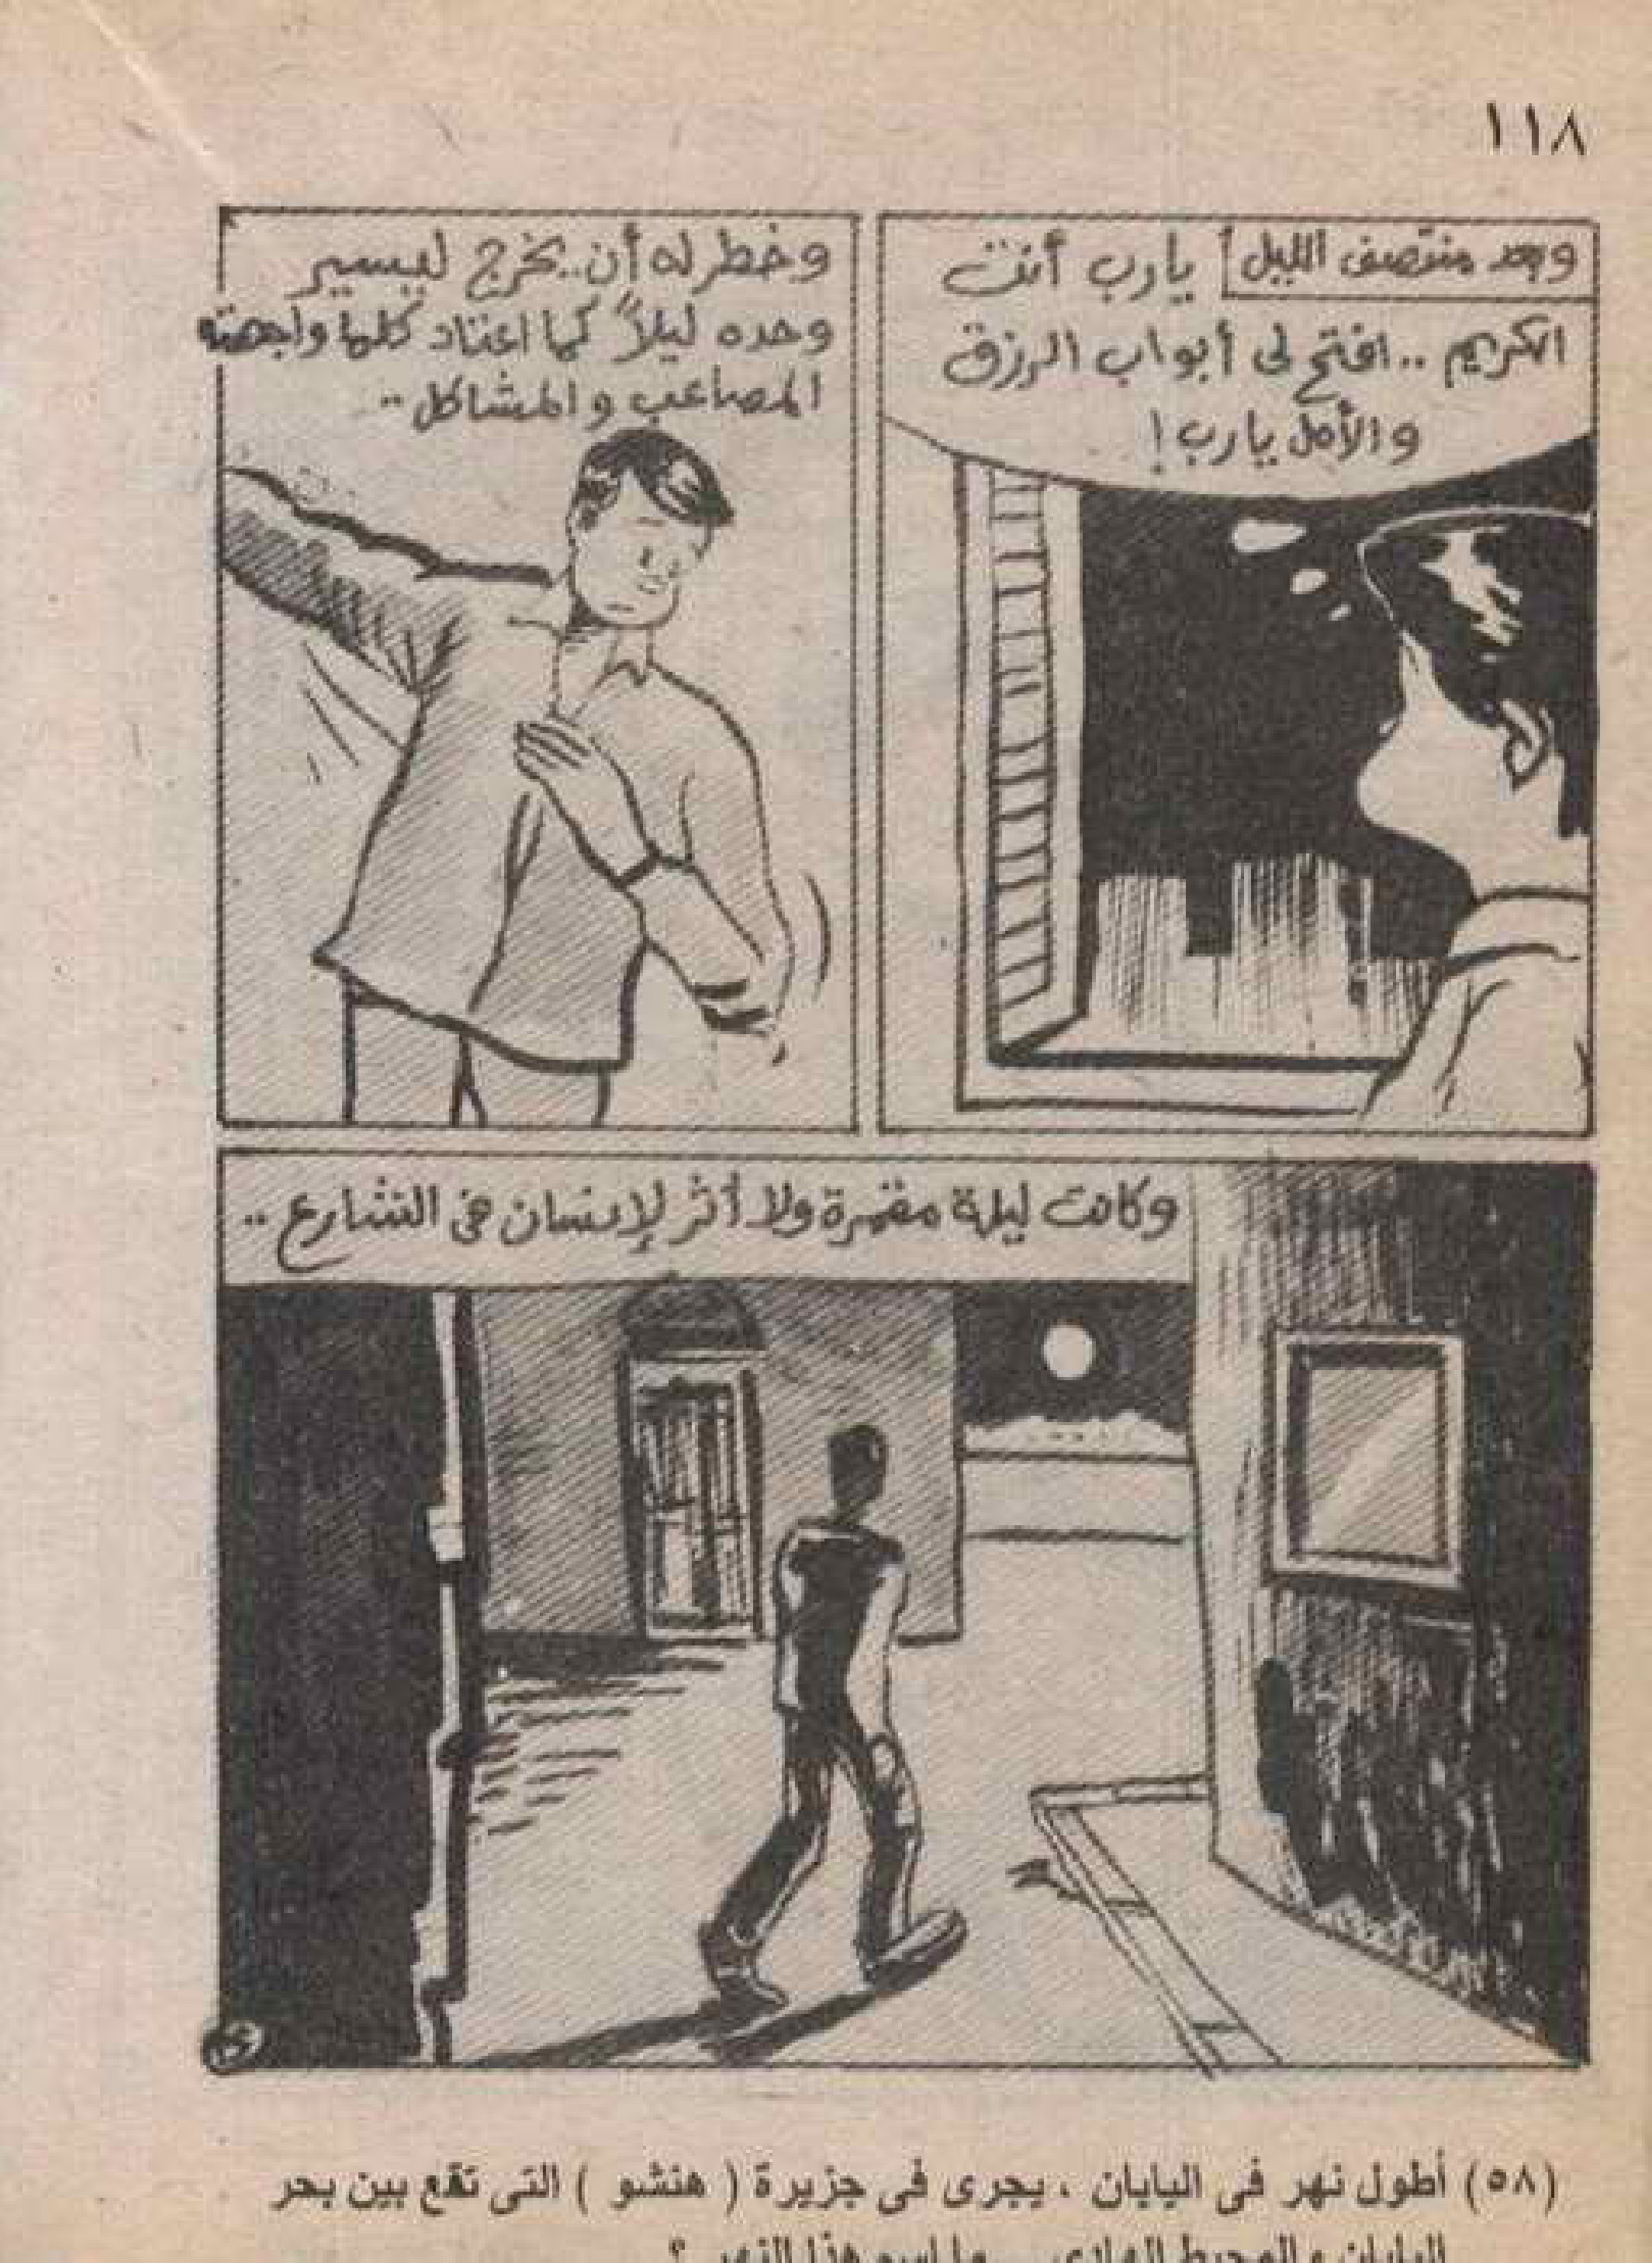 ١١٨
وبعد منتصف الليل
يارب أنت
الكريم .. افتح لى أبواب الرزق
والأمل يارب !
وخطر له أن .. يخرج ليسير
وحده ليلاً كما اعتاد كلما واجهته
المصاعب والمشاكل ..
وكانت ليلة مقمرة ولا أثر لإنسان فى الشارع ..
(٥٨) أطول نهر فى اليابان ، يجرى فى جزيرة ( هنشو ) التى تقع بين بحر
اليابان والمحيط الهادى ... ما اسم هذا النهر ؟